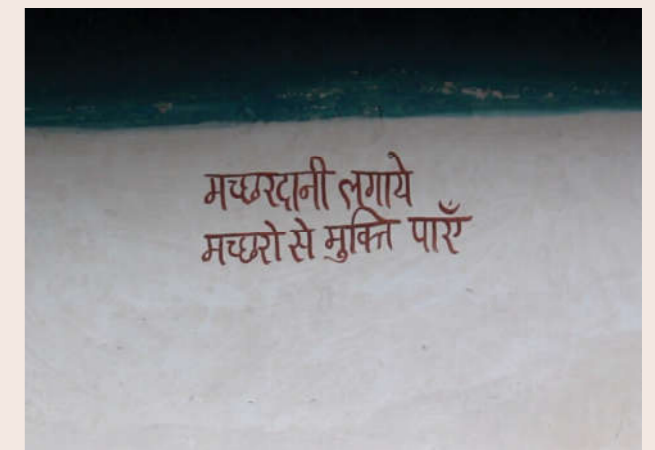 मच्छरदानी लगाये
मच्छरो से मुक्ति पाएँ